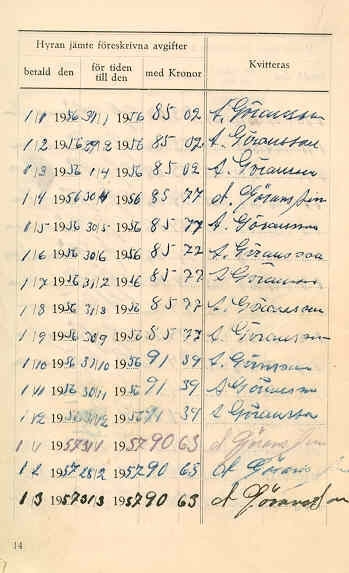 Hyran jämte föreskrivna avgifter
betald den för tiden till den med Kronor Kvitteras
1/1 1956 31/1 1956 85 02 A. Göransson
1/2 1956 29/2 1956 85 02 A. Göransson
1/3 1956 1/4 1956 85 02 A. Göransson
1/4 1956 30/4 1956 85 77 A. Göransson
1/5 1956 30/5 1956 85 77 A. Göransson
1/6 1956 30/6 1956 85 77 A. Göransson
1/7 1956 31/2 1956 85 77 A Göransson
1/8 1956 31/8 1956 85 77 A. Göransson
1/9 1956 30/9 1956 85 77 A. Göransson
1/10 1956 31/10 1956 91 39 A. Göransson
1/11 1956 30/11 1956 91 39 A. Göransson
1/12 1956 31/12 1956 91 39 A Göransson
1/1 1957 31/1 1957 90 63 A Göransson
1/2 1957 28/2 1957 90 63 A Göransson
1/3 1957 31/3 1957 90 63 A Göransson
14